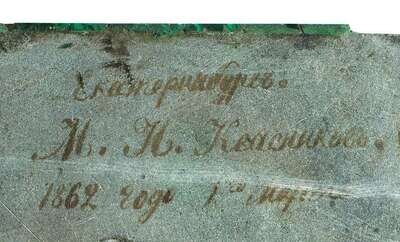 Екатеринбургъ.
М. Н. Квасниковъ.
1862 годъ 1го Марта